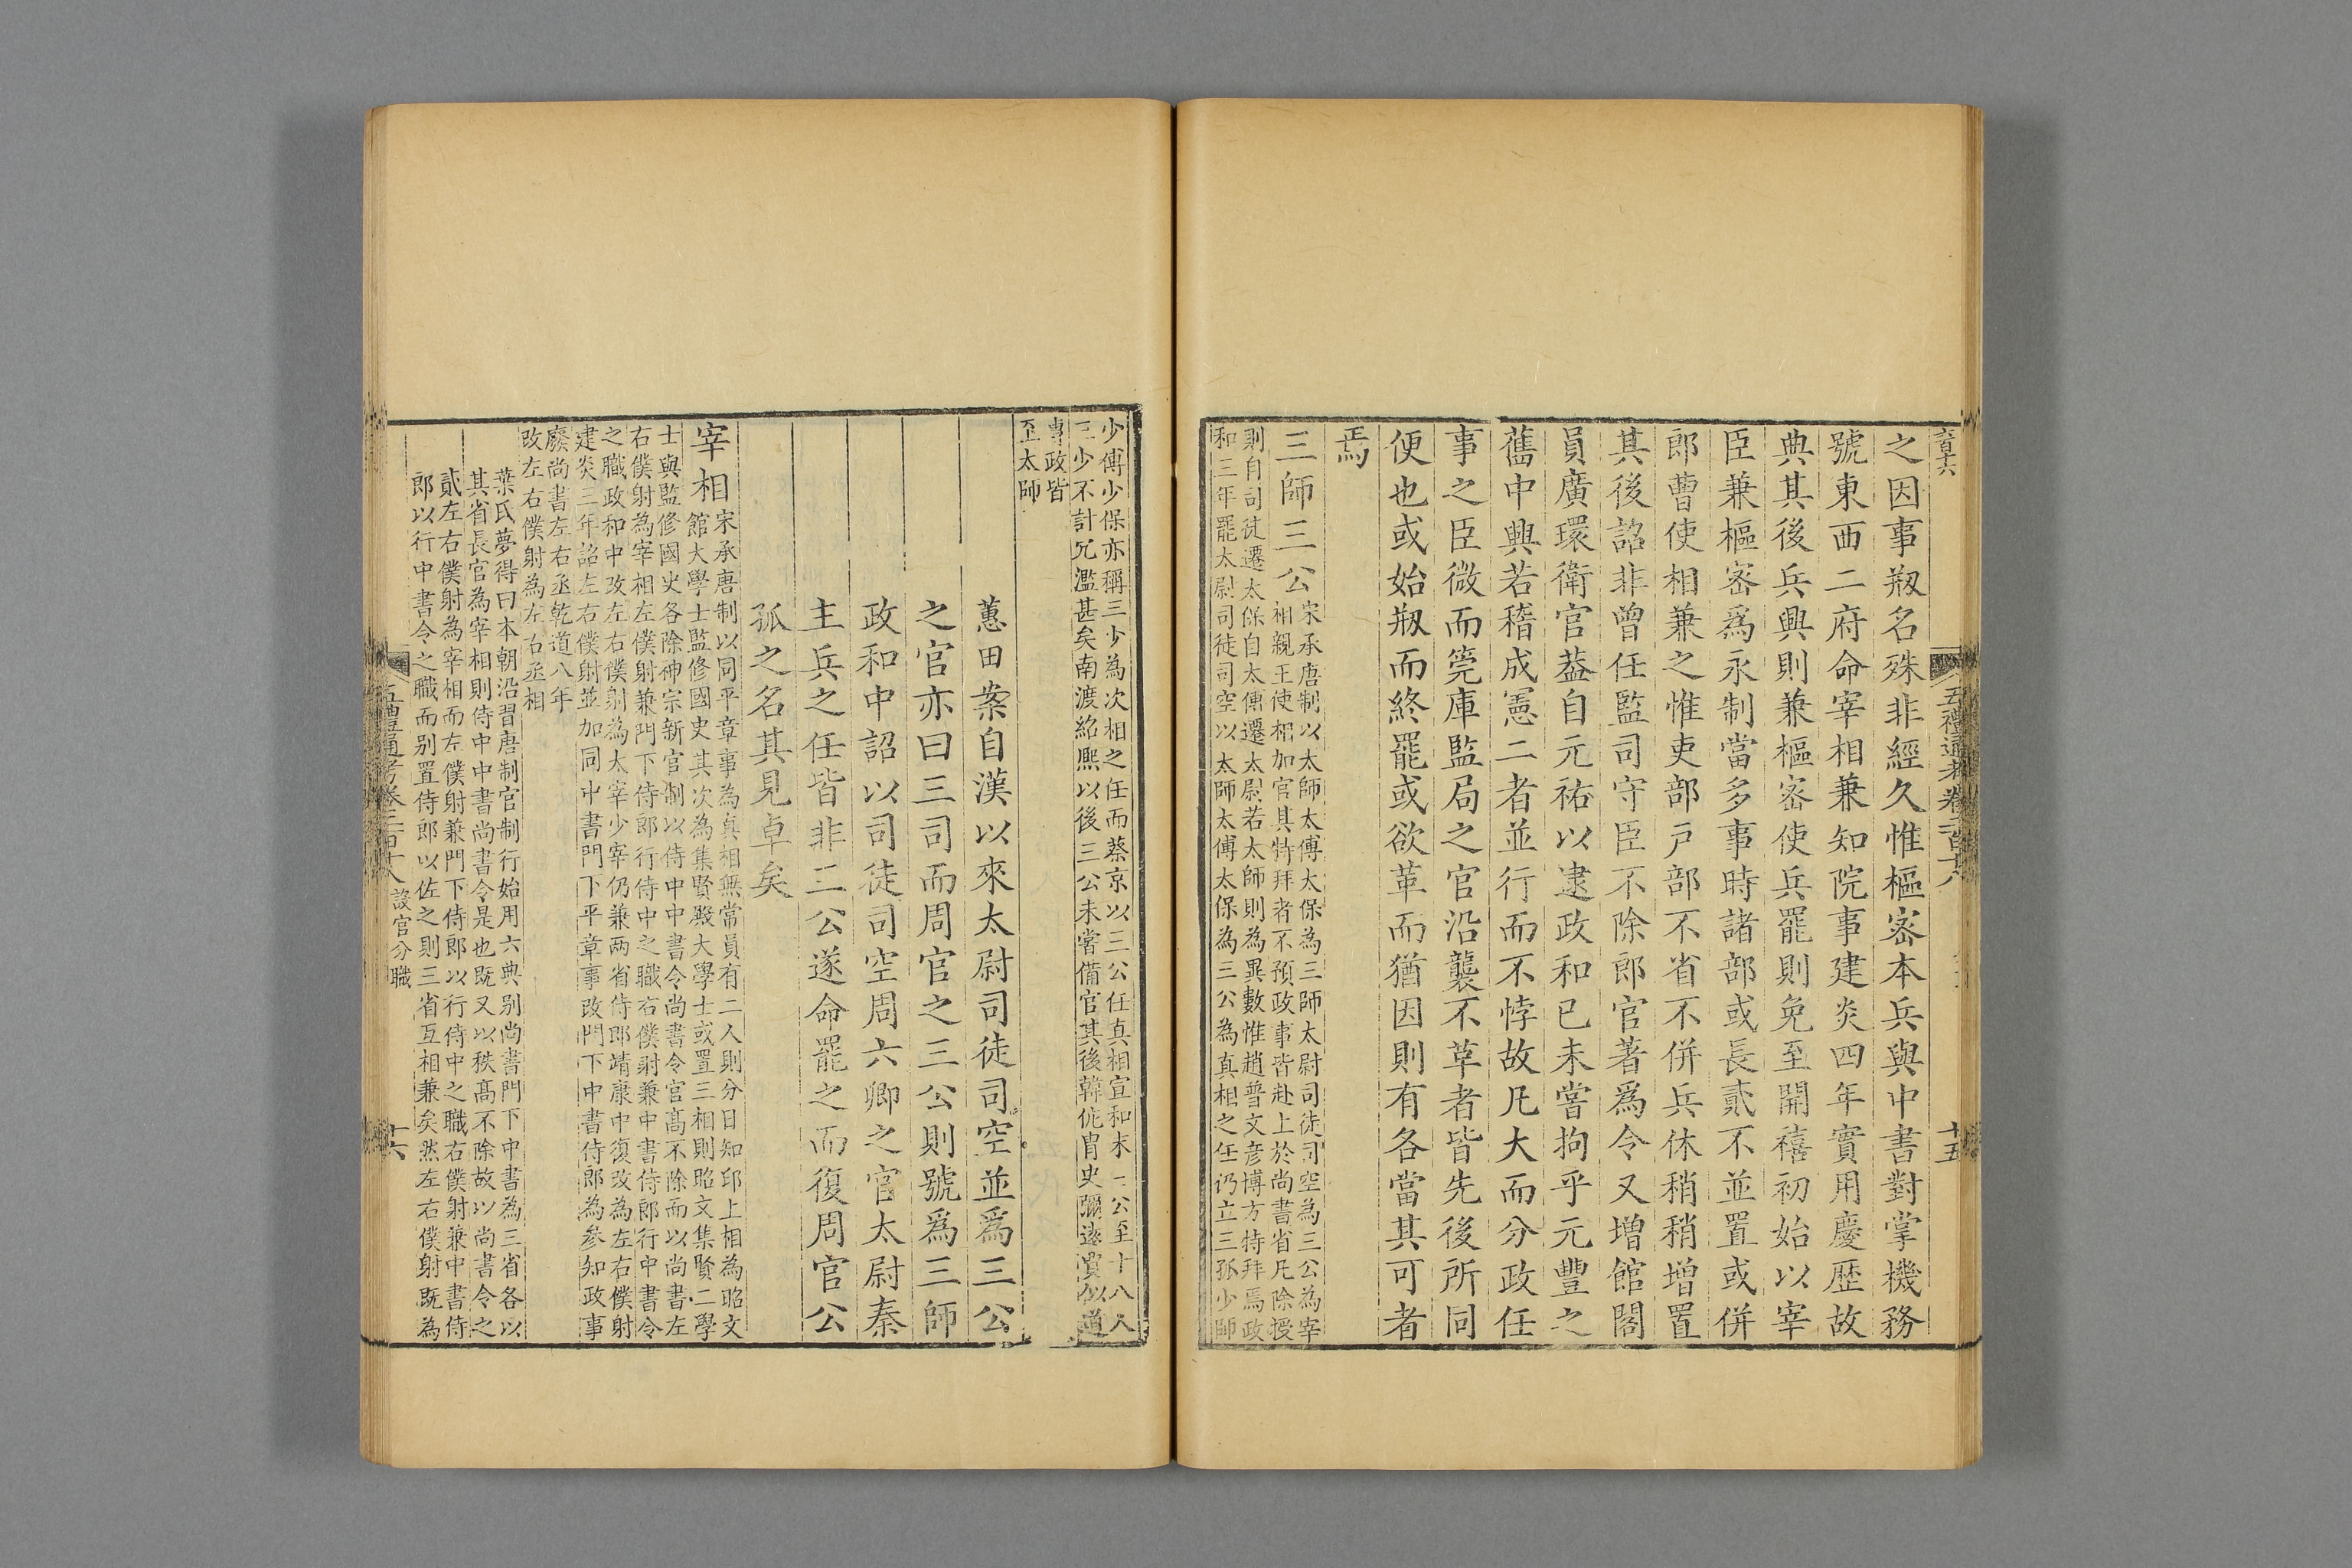 之因事剏名殊非經久惟樞宻本兵與中書對掌機務
號東西二府命宰相兼知院事建炎四年實用慶歴故
典其後兵興則兼樞宻使兵罷則免至開禧初始以宰
臣兼樞宻爲永制當多事時諸部或長貳不並置或併
郎曹使相兼之惟吏部戸部不省不併兵休稍稍増置
其後詔非曾任監司守臣不除郎官著爲令又増館閣
員廣環衛官葢自元祐以逮政和已未嘗拘乎元豐之
舊中興若稽成憲二者並行而不悖故凡大而分政任
事之臣微而筦庫監局之官沿襲不革者皆先後所同
便也或始剏而終罷或欲革而猶因則有各當其可者
焉
三師三公宋承唐制以太師太傅太保為三師太尉司徒司空為三公為宰
相親王使相加官其特拜者不預政事皆赴上於尚書省凡除授
則自司徒遷太保自太傅遷太尉若太師則為異數惟趙普文彦博方特拜焉政
和三年罷太尉司徒司空以太師太傅太保為三公為真相之任仍立三孤少師
少傅少保亦稱三少為次相之任而蔡京以三公任真相宣和末三公至十八人
三少不計冗濫甚矣南渡紹熈以後三公未嘗備官其後韓侂胄史彌遠賈似道
專政皆
至太師
蕙田案自漢以來太尉司徒司空並爲三公
之官亦曰三司而周官之三公則號爲三師
政和中詔以司徒司空周六卿之官太尉秦
主兵之任皆非三公遂命罷之而復周官公
孤之名其見卓矣
宰相宋承唐制以同平章事為真相無常員有二人則分日知印上相為昭文
館大學士監修國史其次為集賢殿大學士或置三相則昭文集賢二學
士與監修國史各除神宗新官制以侍中中書令尚書令官髙不除而以尚書左
右僕射為宰相左僕射兼門下侍郎行侍中之職右僕射兼中書侍郎行中書令
之職政和中改左右僕射為太宰少宰仍兼兩省侍郎靖康中復改為左右僕射
建炎三年詔左右僕射並加同中書門下平章事改門下中書侍郎為參知政事
廢尚書左右丞乾道八年
改左右僕射為左右丞相
葉氏夢得曰本朝沿習唐制官制行始用六典别尚書門下中書為三省各以
其省長官為宰相則侍中中書尚書令是也既又以秩髙不除故以尚書令之
貳左右僕射為宰相而左僕射兼門下侍郎以行侍中之職右僕射兼中書侍
郎以行中書令之職而别置侍郎以佐之則三省互相兼矣然左右僕射既為
五禮通考卷二百十八 設官分職
十六
五禮通考卷二百十八
十五